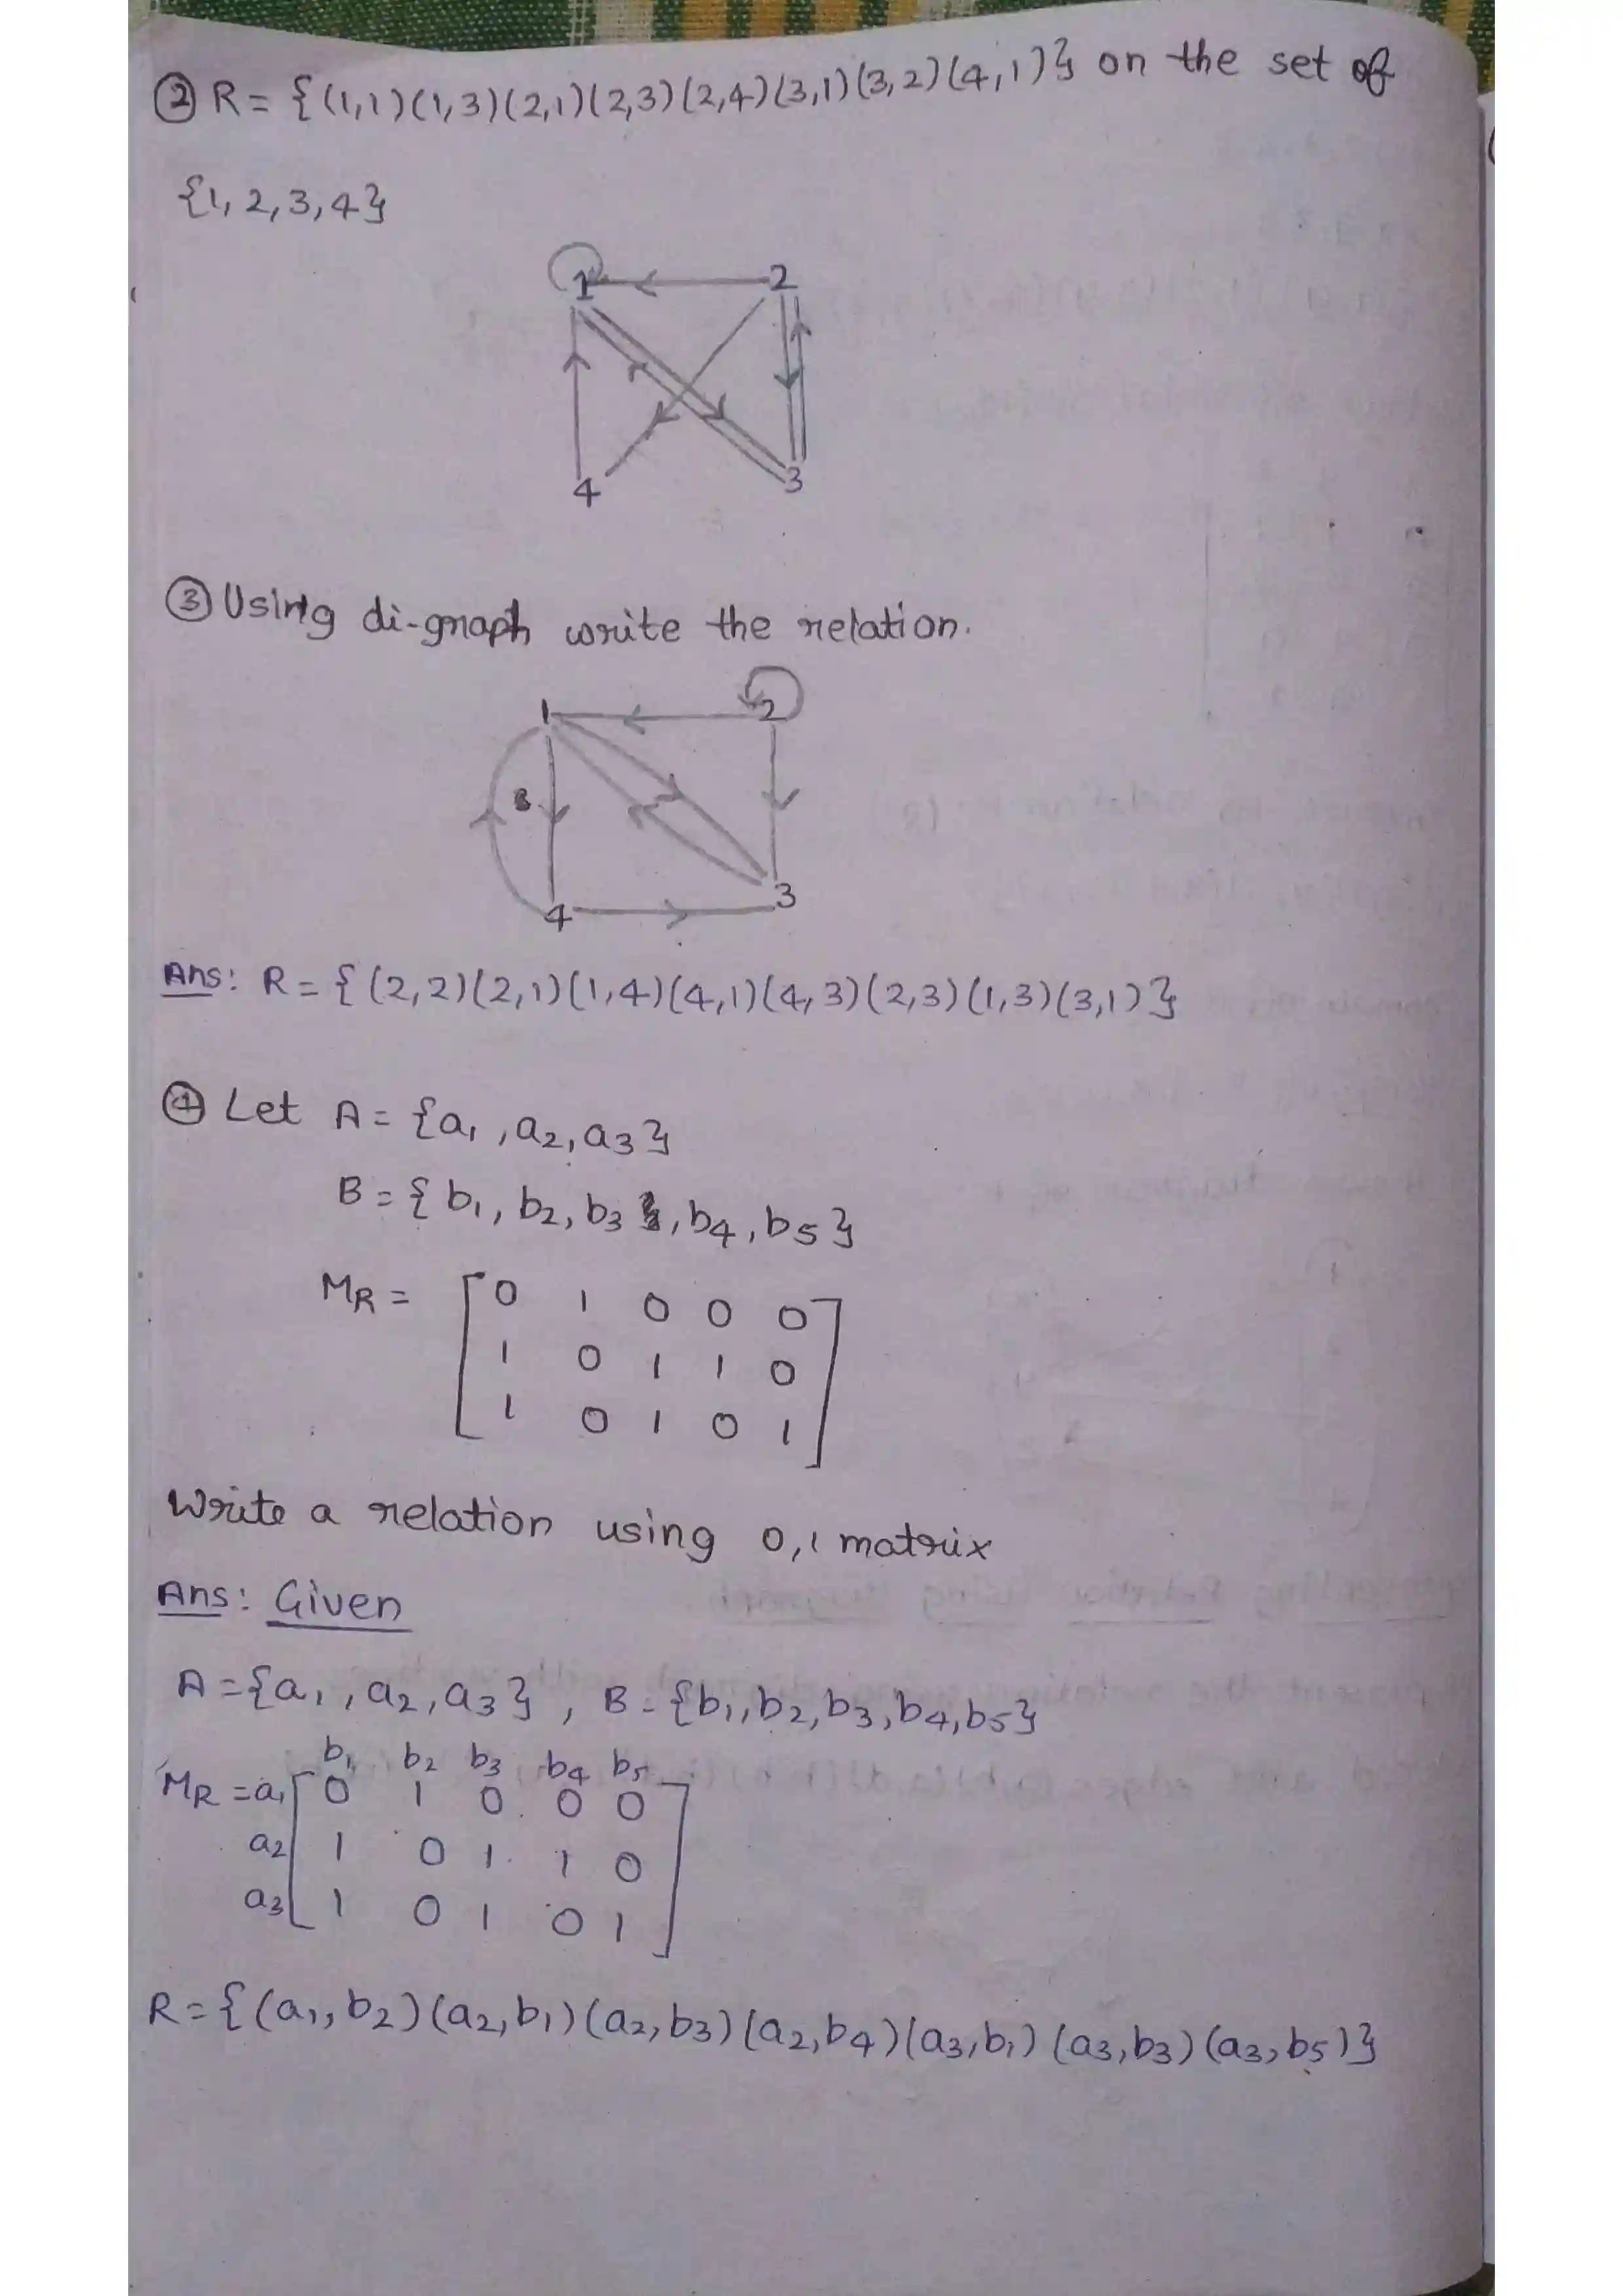 ② R = {(1,1)(1,3)(2,1)(2,3)(2,4)(3,1)(3,2)(4,1)} on the set of
{1, 2, 3, 4}
1 2
4 3
③ Using di-graph write the relation.
1 2
4 3
Ans: R = {(2,2)(2,1)(1,4)(4,1)(4,3)(2,3)(1,3)(3,1)}
④ Let A = {a₁, a₂, a₃}
B = {b₁, b₂, b₃, b₄, b₅}
M_R = [0 1 0 0 0
1 0 1 1 0
1 0 1 0 1]
Write a relation using 0,1 matrix
Ans: Given
A = {a₁, a₂, a₃}, B = {b₁, b₂, b₃, b₄, b₅}
b₁ b₂ b₃ b₄ b₅
M_R = a₁ [0 1 0 0 0
a₂ 1 0 1 1 0
a₃ 1 0 1 0 1]
R = {(a₁, b₂)(a₂, b₁)(a₂, b₃)(a₂, b₄)(a₃, b₁)(a₃, b₃)(a₃, b₅)}